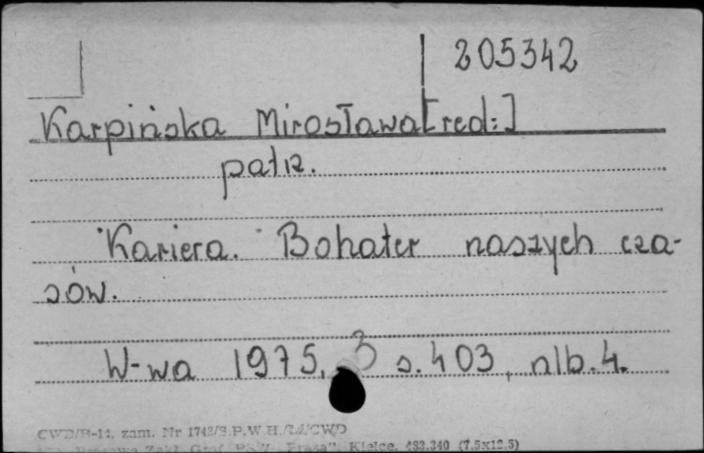 205342
Karpińska Mirosława [red:]
patrz.
"Kariera." Bohater naszych cza-
sów.
W-wa 1975, s. 403, nlb. 4.
CWD/B-14, zam. Nr 1742/S.P.W.H./Ł/CWD
Zakł. Graf. "Prasa" Kielce, 483.340 (7.5x12.5)